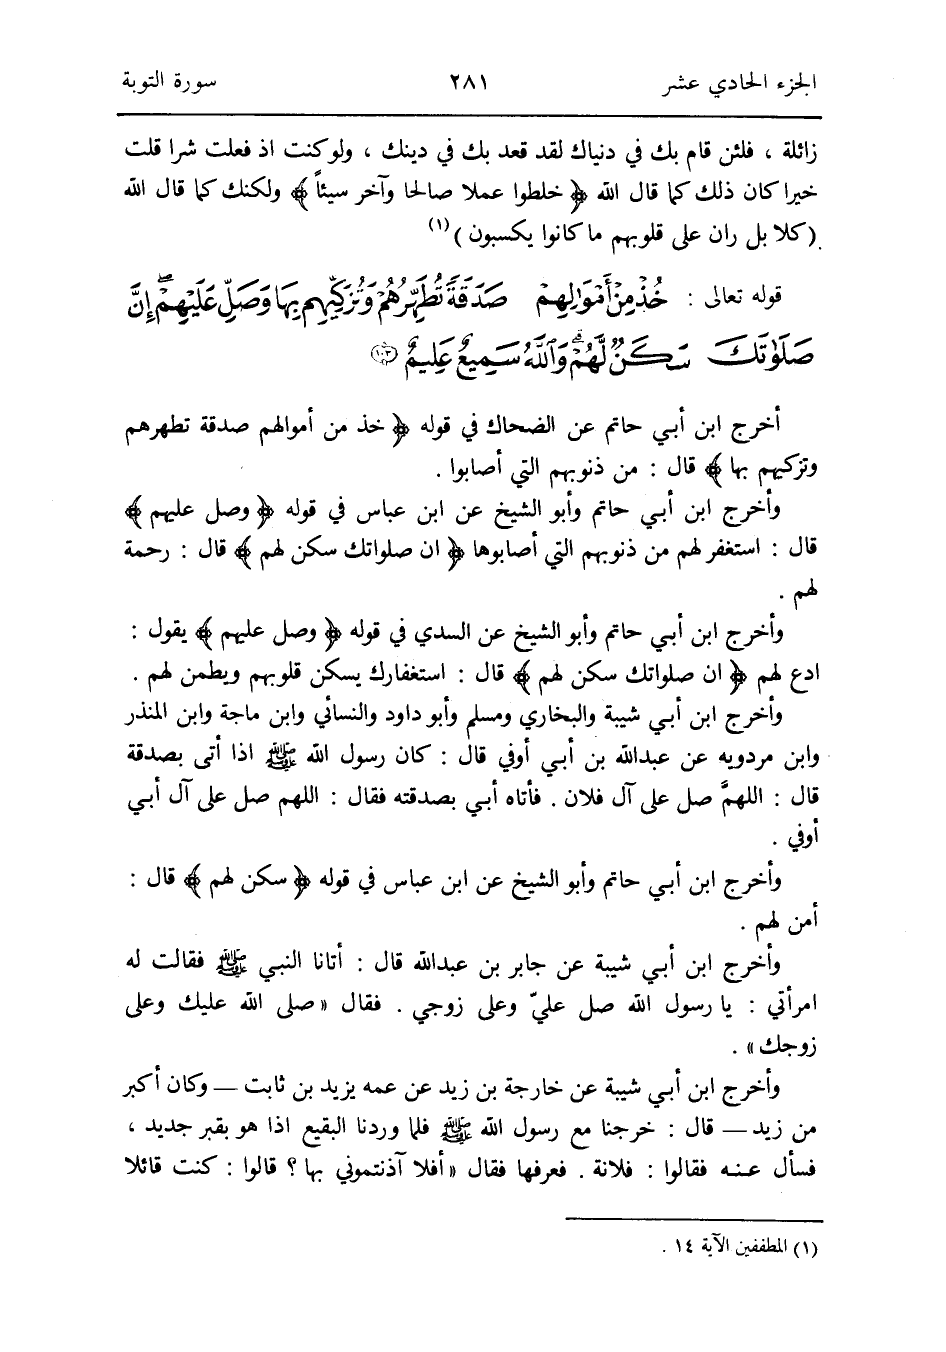 الجزء الحادي عشر ٢٨١ سورة التوبة
زائلة ، فلئن قام بك في دنياك لقد قعد بك في دينك ، ولو كنت اذ فعلت شرا قلت
خيرا كان ذلك كما قال الله ﴿ خلطوا عملا صالحا وآخر سيئاً ﴾ ولكنك كما قال الله
(كلا بل ران على قلوبهم ما كانوا يكسبون ) (١)
قوله تعالى : خُذْ مِنْ أَمْوَٰلِهِمْ صَدَقَةً تُطَهِّرُهُمْ وَتُزَكِّيهِم بِهَا وَصَلِّ عَلَيْهِمْ ۖ إِنَّ
صَلَوٰتَكَ سَكَنٌ لَّهُمْ ۗ وَٱللَّهُ سَمِيعٌ عَلِيمٌ ١٠٣
أخرج ابن أبي حاتم عن الضحاك في قوله ﴿ خذ من أموالهم صدقة تطهرهم
وتزكيهم بها ﴾ قال : من ذنوبهم التي أصابوا .
وأخرج ابن أبي حاتم وأبو الشيخ عن ابن عباس في قوله ﴿ وصل عليهم ﴾
قال : استغفر لهم من ذنوبهم التي أصابوها ﴿ ان صلواتك سكن لهم ﴾ قال : رحمة
لهم .
وأخرج ابن أبي حاتم وأبو الشيخ عن السدي في قوله ﴿ وصل عليهم ﴾ يقول :
ادع لهم ﴿ ان صلواتك سكن لهم ﴾ قال : استغفارك يسكن قلوبهم ويطمن لهم .
وأخرج ابن أبي شيبة والبخاري ومسلم وأبو داود والنسائي وابن ماجة وابن المنذر
وابن مردويه عن عبدالله بن أبي أوفي قال : كان رسول الله ﷺ اذا أتى بصدقة
قال : اللهمَّ صل على آل فلان . فأتاه أبي بصدقته فقال : اللهم صل على آل أبي
أوفي .
وأخرج ابن أبي حاتم وأبو الشيخ عن ابن عباس في قوله ﴿ سكن لهم ﴾ قال :
أمن لهم .
وأخرج ابن أبي شيبة عن جابر بن عبدالله قال : أتانا النبي ﷺ فقالت له
امرأتي : يا رسول الله صل عليّ وعلى زوجي . فقال « صلى الله عليك وعلى
زوجك » .
وأخرج ابن أبي شيبة عن خارجة بن زيد عن عمه يزيد بن ثابت — وكان أكبر
من زيد — قال : خرجنا مع رسول الله ﷺ فلما وردنا البقيع اذا هو بقبر جديد ،
فسأل عنه فقالوا : فلانة . فعرفها فقال « أفلا آذنتموني بها ؟ قالوا : كنت قائلا
(١) المطففين الآية ١٤ .